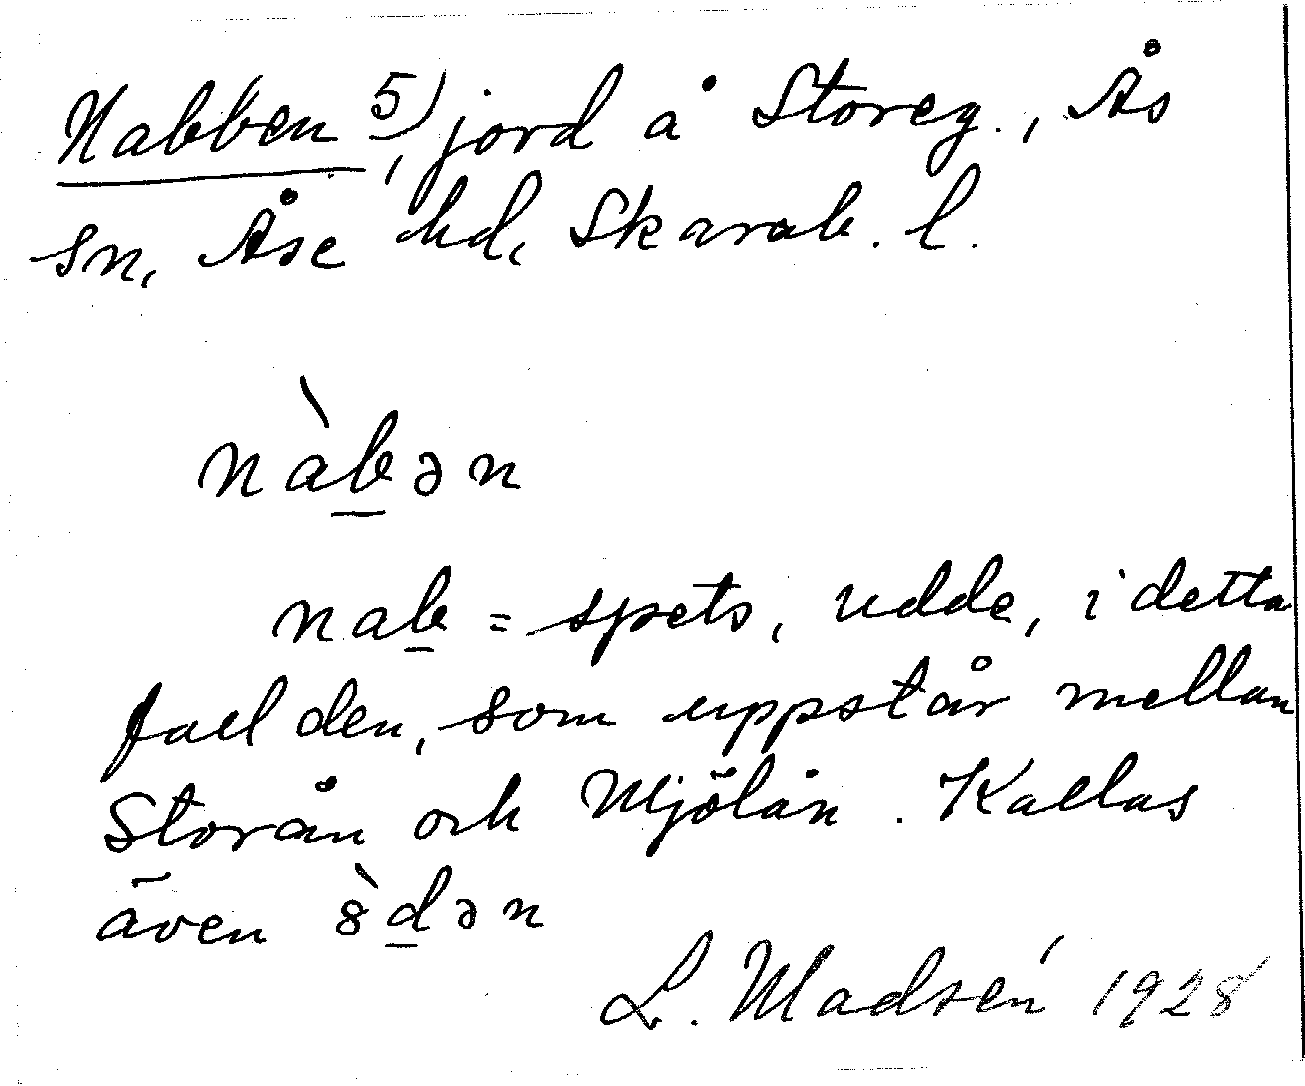 Nabben 5), jord å Storeg., Ås
sn, Åse hd, Skarab. l.
nàb̲ən
nab̲ = spets, udde, i detta
fall den, som uppstår mellan
Storån och Mjölån. Kallas
även 8̀d̲ən
L. Madsén 1928